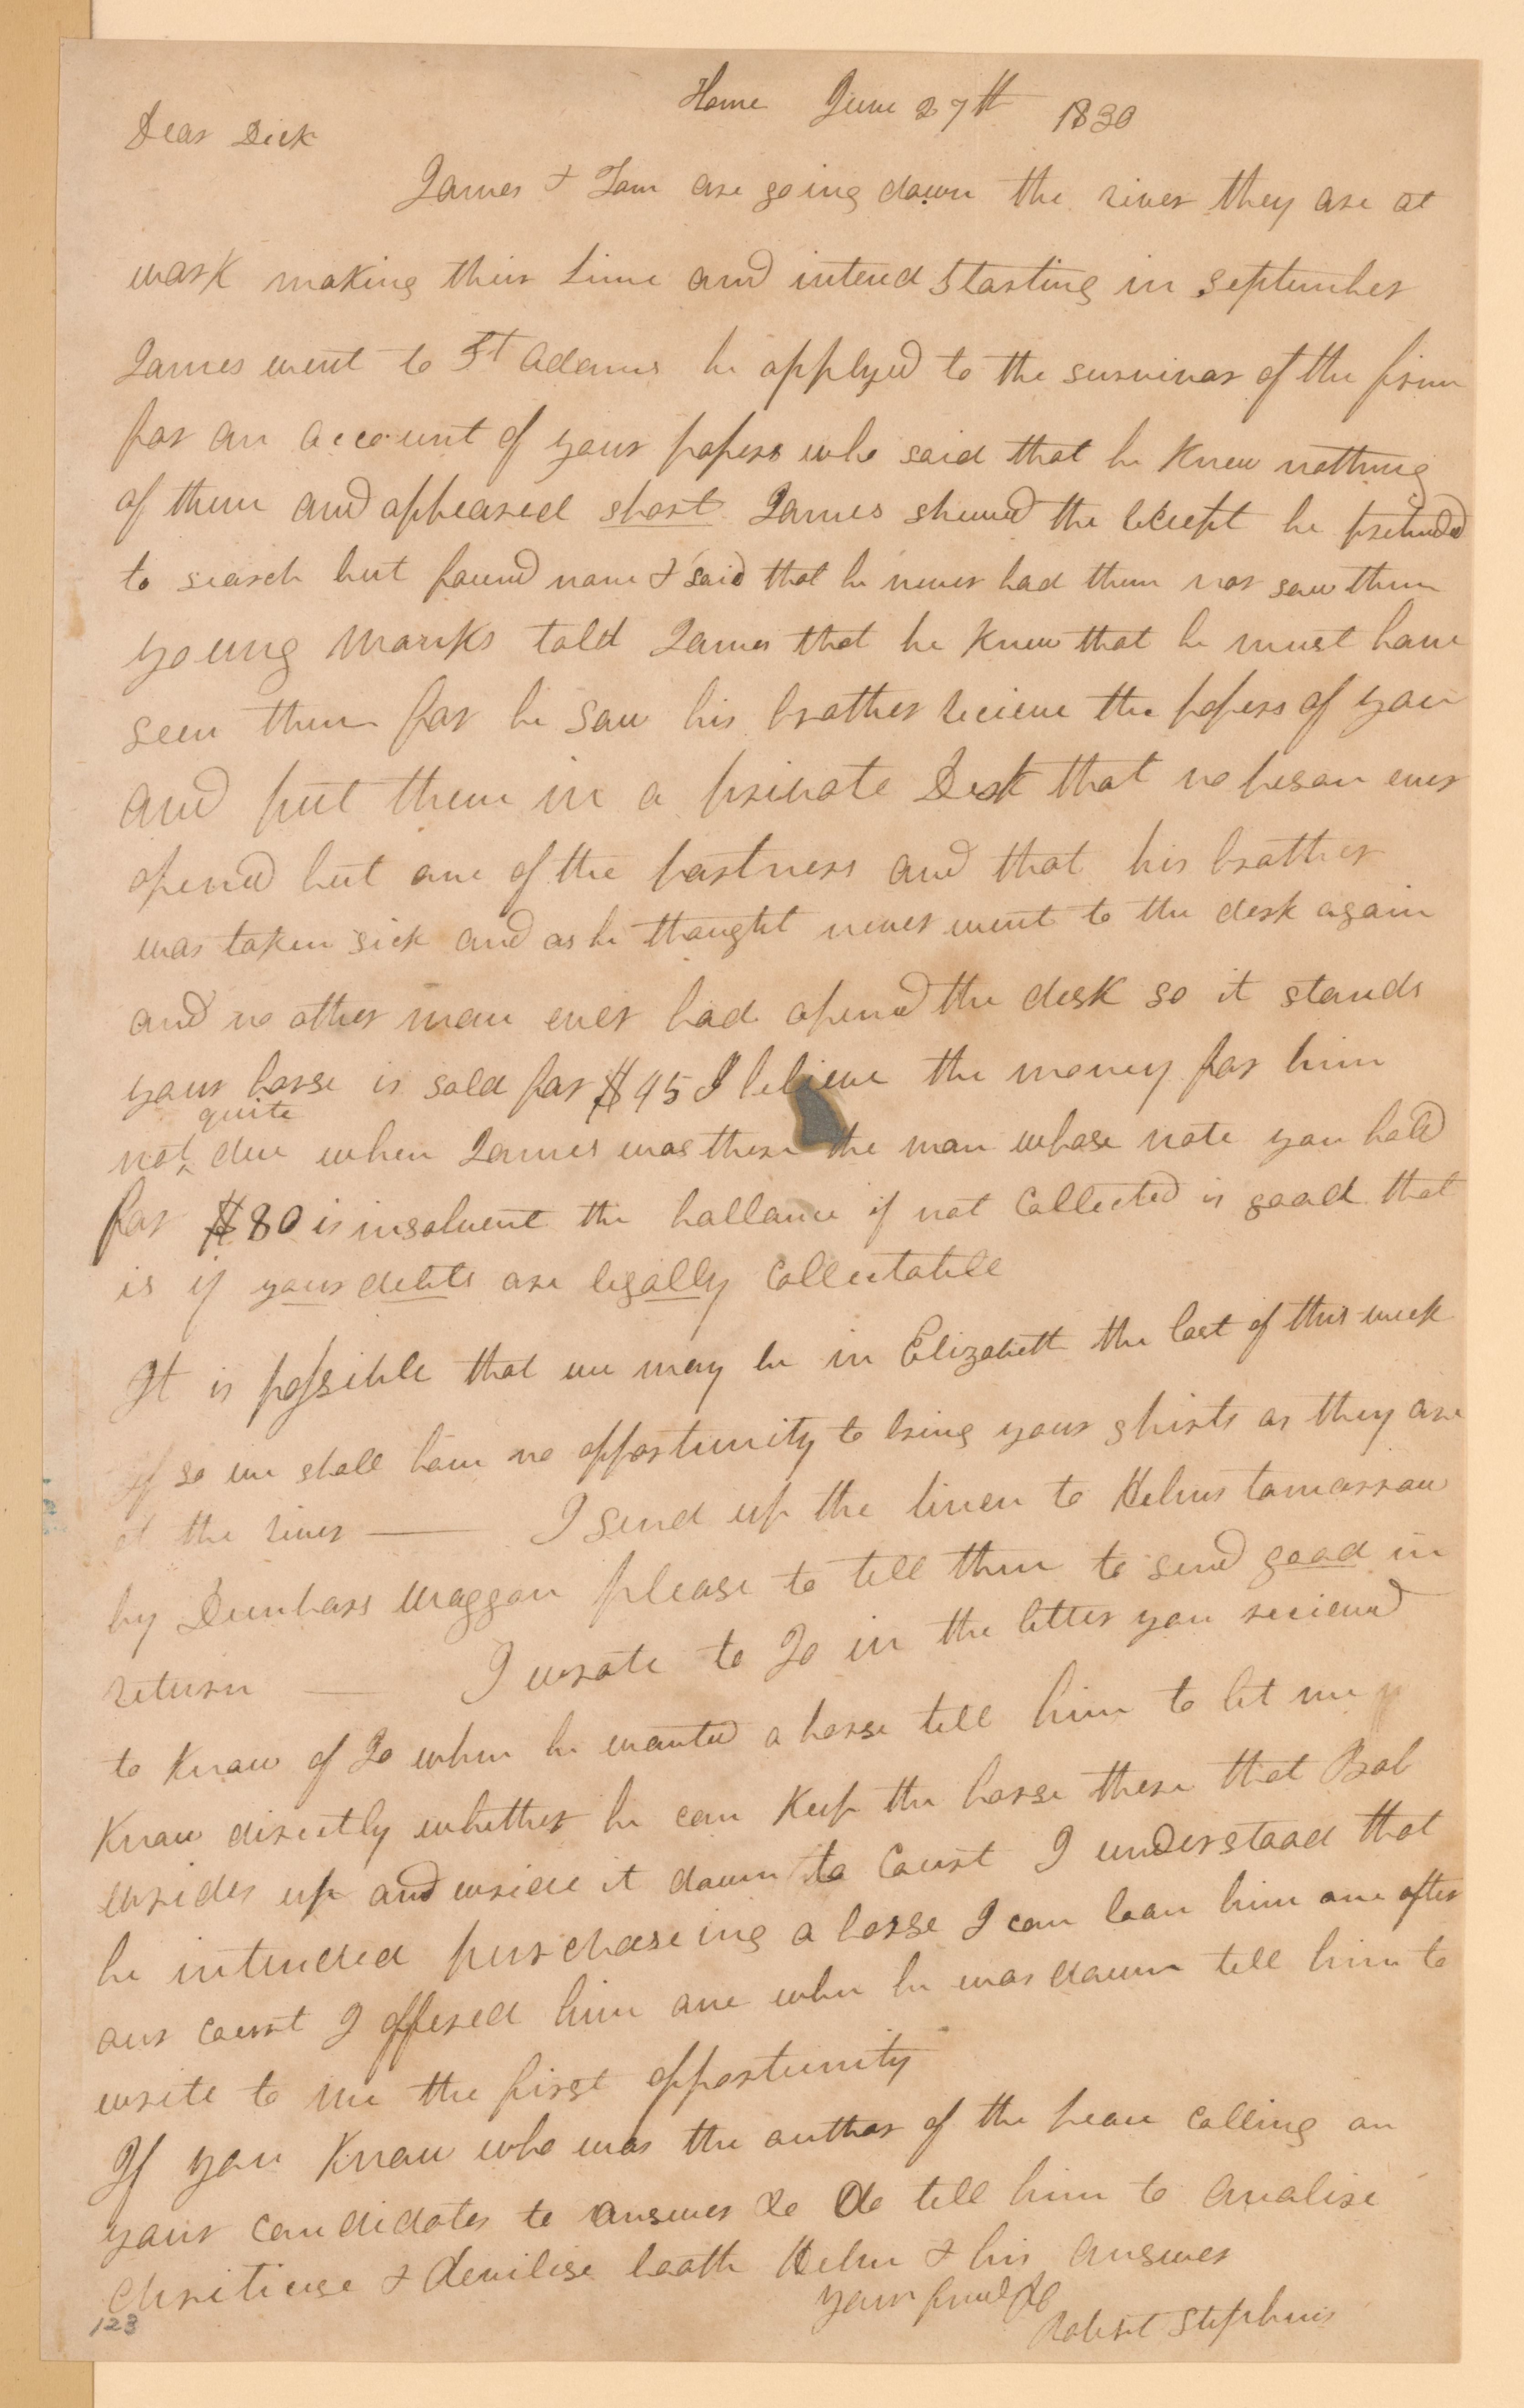 Home June 27th 1830
Dear Dick
James & Tom are going down the river they are at
work making their lime and intend starting in September
James went to St Adams he applyed to the survivor of the firm
for an account of your papers who said that he knew nothing
of them and appeared short James shewed the receipt he pretended
to search but found none & said that he never had them nor saw them
young Marks told James that he knew that he must have
seen them for he saw his brother recieve the papers of you
and put them in a private Desk that no peson ever
opened but one of the partners and that his brother
was taken sick and as he thought never went to the desk again
and no other man ever had opened the desk so it stands
your horse is sold for $95 I believe the money for him
quite
not due when James was there the man whose note you hold
for $80 is insolvent the ballance if not collected is good that
is if your debts are legally collectable
It is possible that we may be in Elizabeth the last of this week
If so we shall have no opportunity to bring your shirts as they are
at the river — I send up the linen to Helms tomorrow
by Dunbars waggon please to tell them to send good in
return — I wrote to Jo in the letter you recieved
to know of Jo when he wanted a horse tell him to let me
know directly whether he can keep the horse there that Bob
wrides up and wride it down to Court I understood that
he intended purchaseing a horse I can loan him one after
our court I offered him one when he was down tell him to
write to me the first opportunity
If you know who was the author of the peace calling on
your candidates to answer &c do tell him to analise
chritiese & devilise boath Helm & his answer
your friend &c
Robert Stephens
123